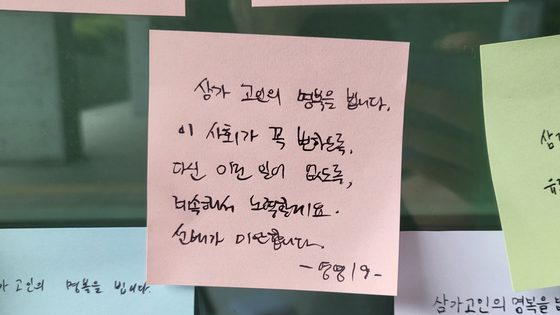 삼가 고인의 명복을 빕니다.
이 사회가 꼭 변하도록,
다신 이런 일이 없도록,
계속해서 노력할게요.
선배가 미안합니다.
삼가 고인의 명복을 빕니다.
삼가고인의 명복을
삼가